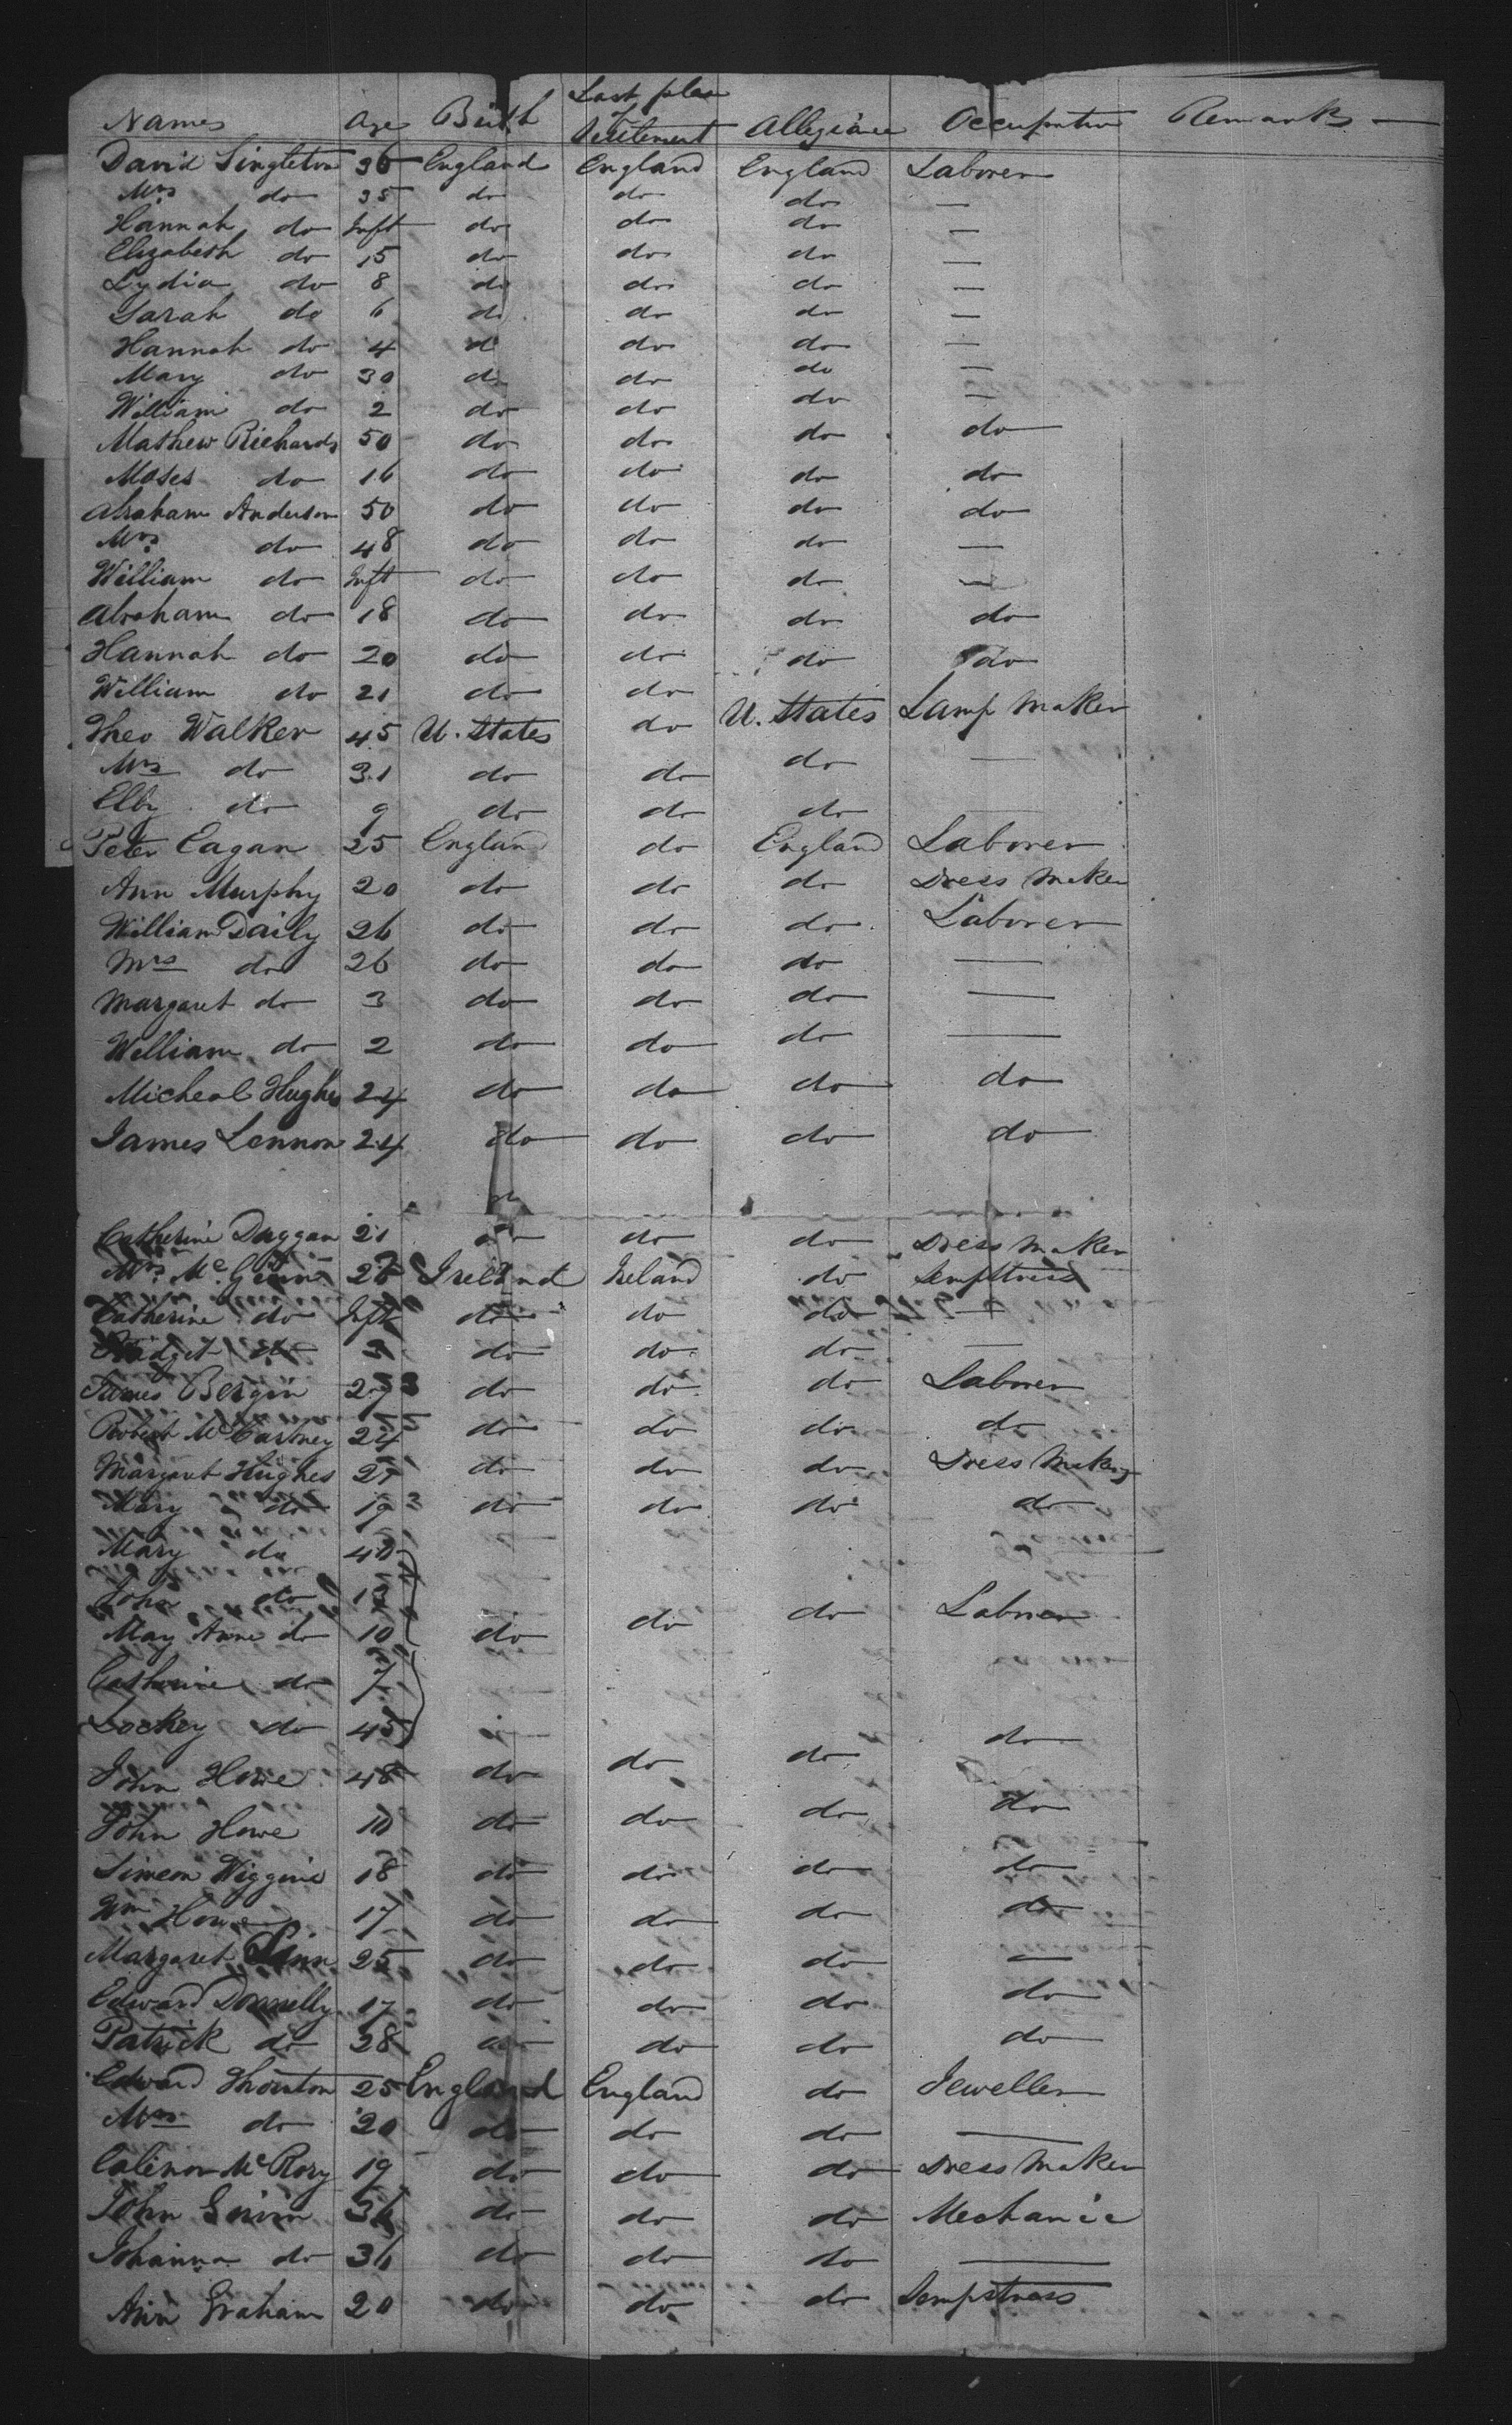 Names Age Birth Last place of Settlement Allegiance Occupation Remarks —
David Singleton 36 England England England Laborer
Mrs do 35 do do do —
Hannah do Inft do do do —
Elizabeth do 15 do do do —
Lydia do 8 do do do —
Sarah do 6 do do do —
Hannah do 4 do do do —
Mary do 30 do do do —
William do 2 do do do —
Mathew Richards 50 do do do do
Moses do 16 do do do do
Abraham Anderson 50 do do do do
Mrs do 48 do do do —
William do Inft do do do —
Abraham do 18 do do do do
Hannah do 20 do do do do
William do 21 do do
Theo Walker 45 U. States do U. States Lamp Maker
Mrs do 31 do do do —
Elby do 9 do do do —
Peter Eagan 25 England do England Laborer
Ann Murphy 20 do do do Dress Maker
William Daily 26 do do do Laborer
Mrs do 26 do do do —
Margaret do 3 do do do —
William do 2 do do do —
Micheal Hughes 24 do do do do
James Lennon 24 do do do do
Catherine Duggan 21 do do do Dress Maker
Mrs McGinn Ireland Ireland do Sempstress
Catherine do Inft do do do —
Bridget do 3 do do do —
James Bergin 27 do do do Laborer
Robert McCartney 24 do do do do
Margaret Hughes 27 do do do Dress Maker
Mary do 19 do do do do
Mary do 40
John do 13
May Anne do 10 do do do Laborer
Catherine do 7
Lockey do 45 do
John Howe 48 do do do
John Howe 10 do do do do
Simeon Wiggins 18 do do do do
Wm Howe 17 do do do do
Margaret 25 do do do —
Edward Donnelly 17 do do do do
Patrick do 28 do do do do
Edward Thornton 25 England England do Jeweller
Mrs do 20 do do do —
McRory 19 do do do Dress Maker
John 36 do do do Mechanic
Johanna do 36 do do do —
Ann Graham 20 do do do Sempstress